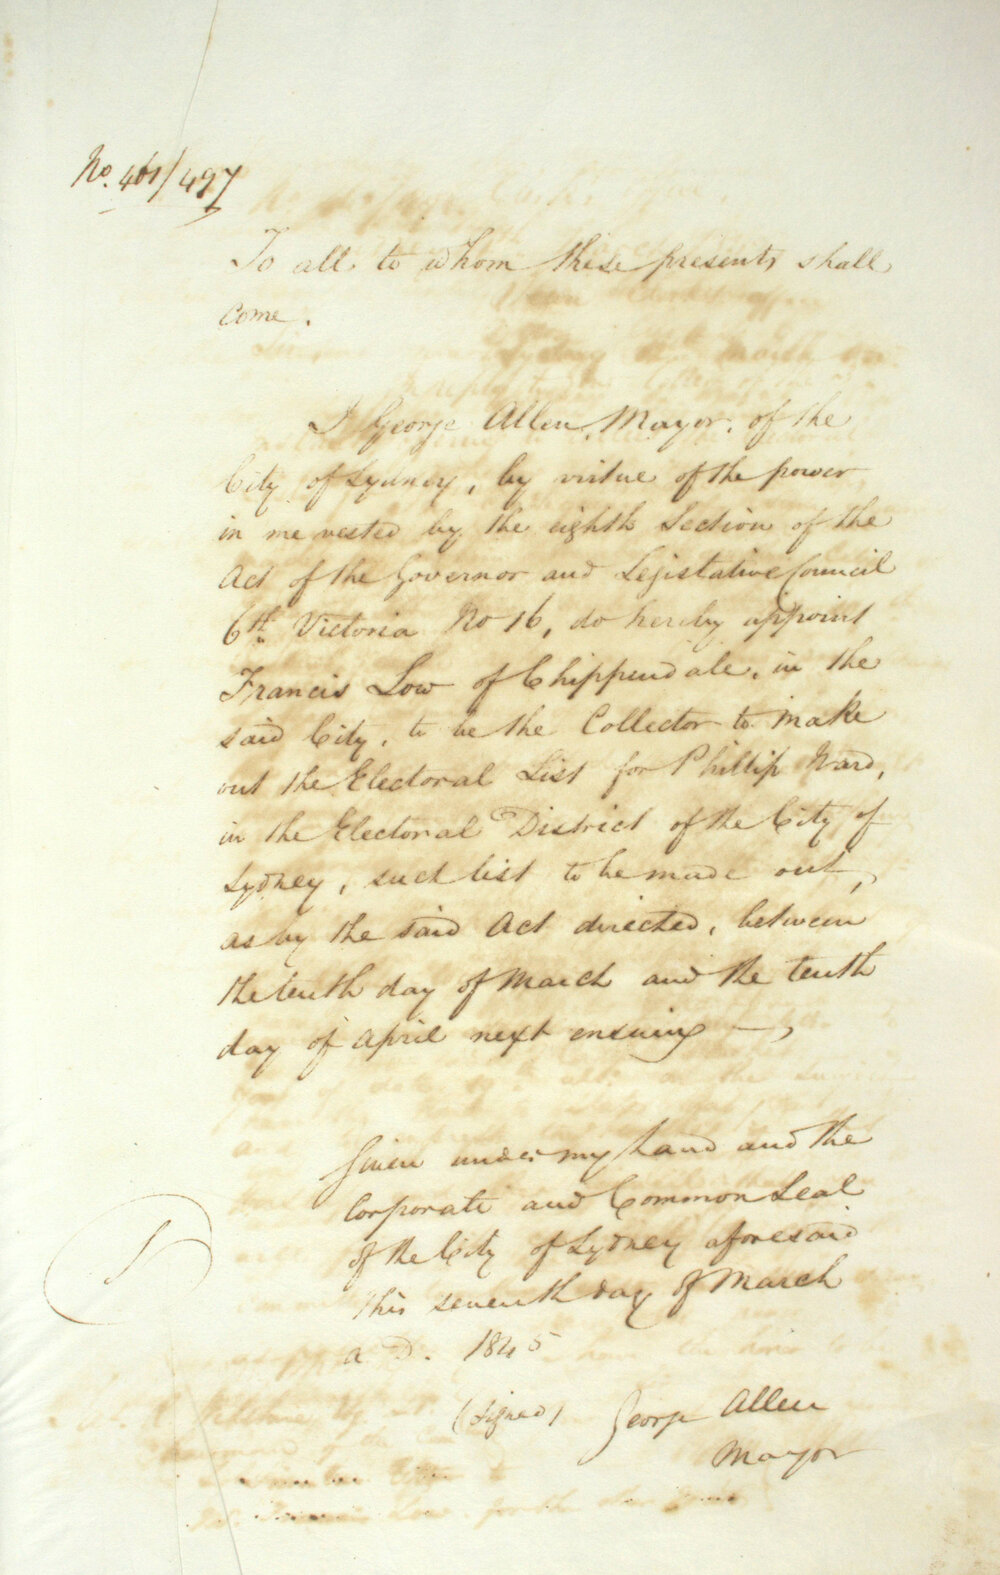 No. 461/497
To all to whom these presents shall
come.
I George Allen, Mayor, of the
City of Sydney, by virtue of the power
in me vested by the eighth Section of the
Act of the Governor and Legislative Council
6th Victoria No 16, do hereby appoint
Francis Low of Chippendale, in the
said City, to be the Collector to make
out the Electoral List for Phillip Ward,
in the Electoral District of the City of
Sydney, such list to be made out,
as by the said Act directed, between
the tenth day of March and the tenth
day of April next ensuing —,
Given under my hand and the
Corporate and Common Seal
of the City of Sydney aforesaid
this seventh day of March
A D. 1845
(Signed) George Allen
Mayor